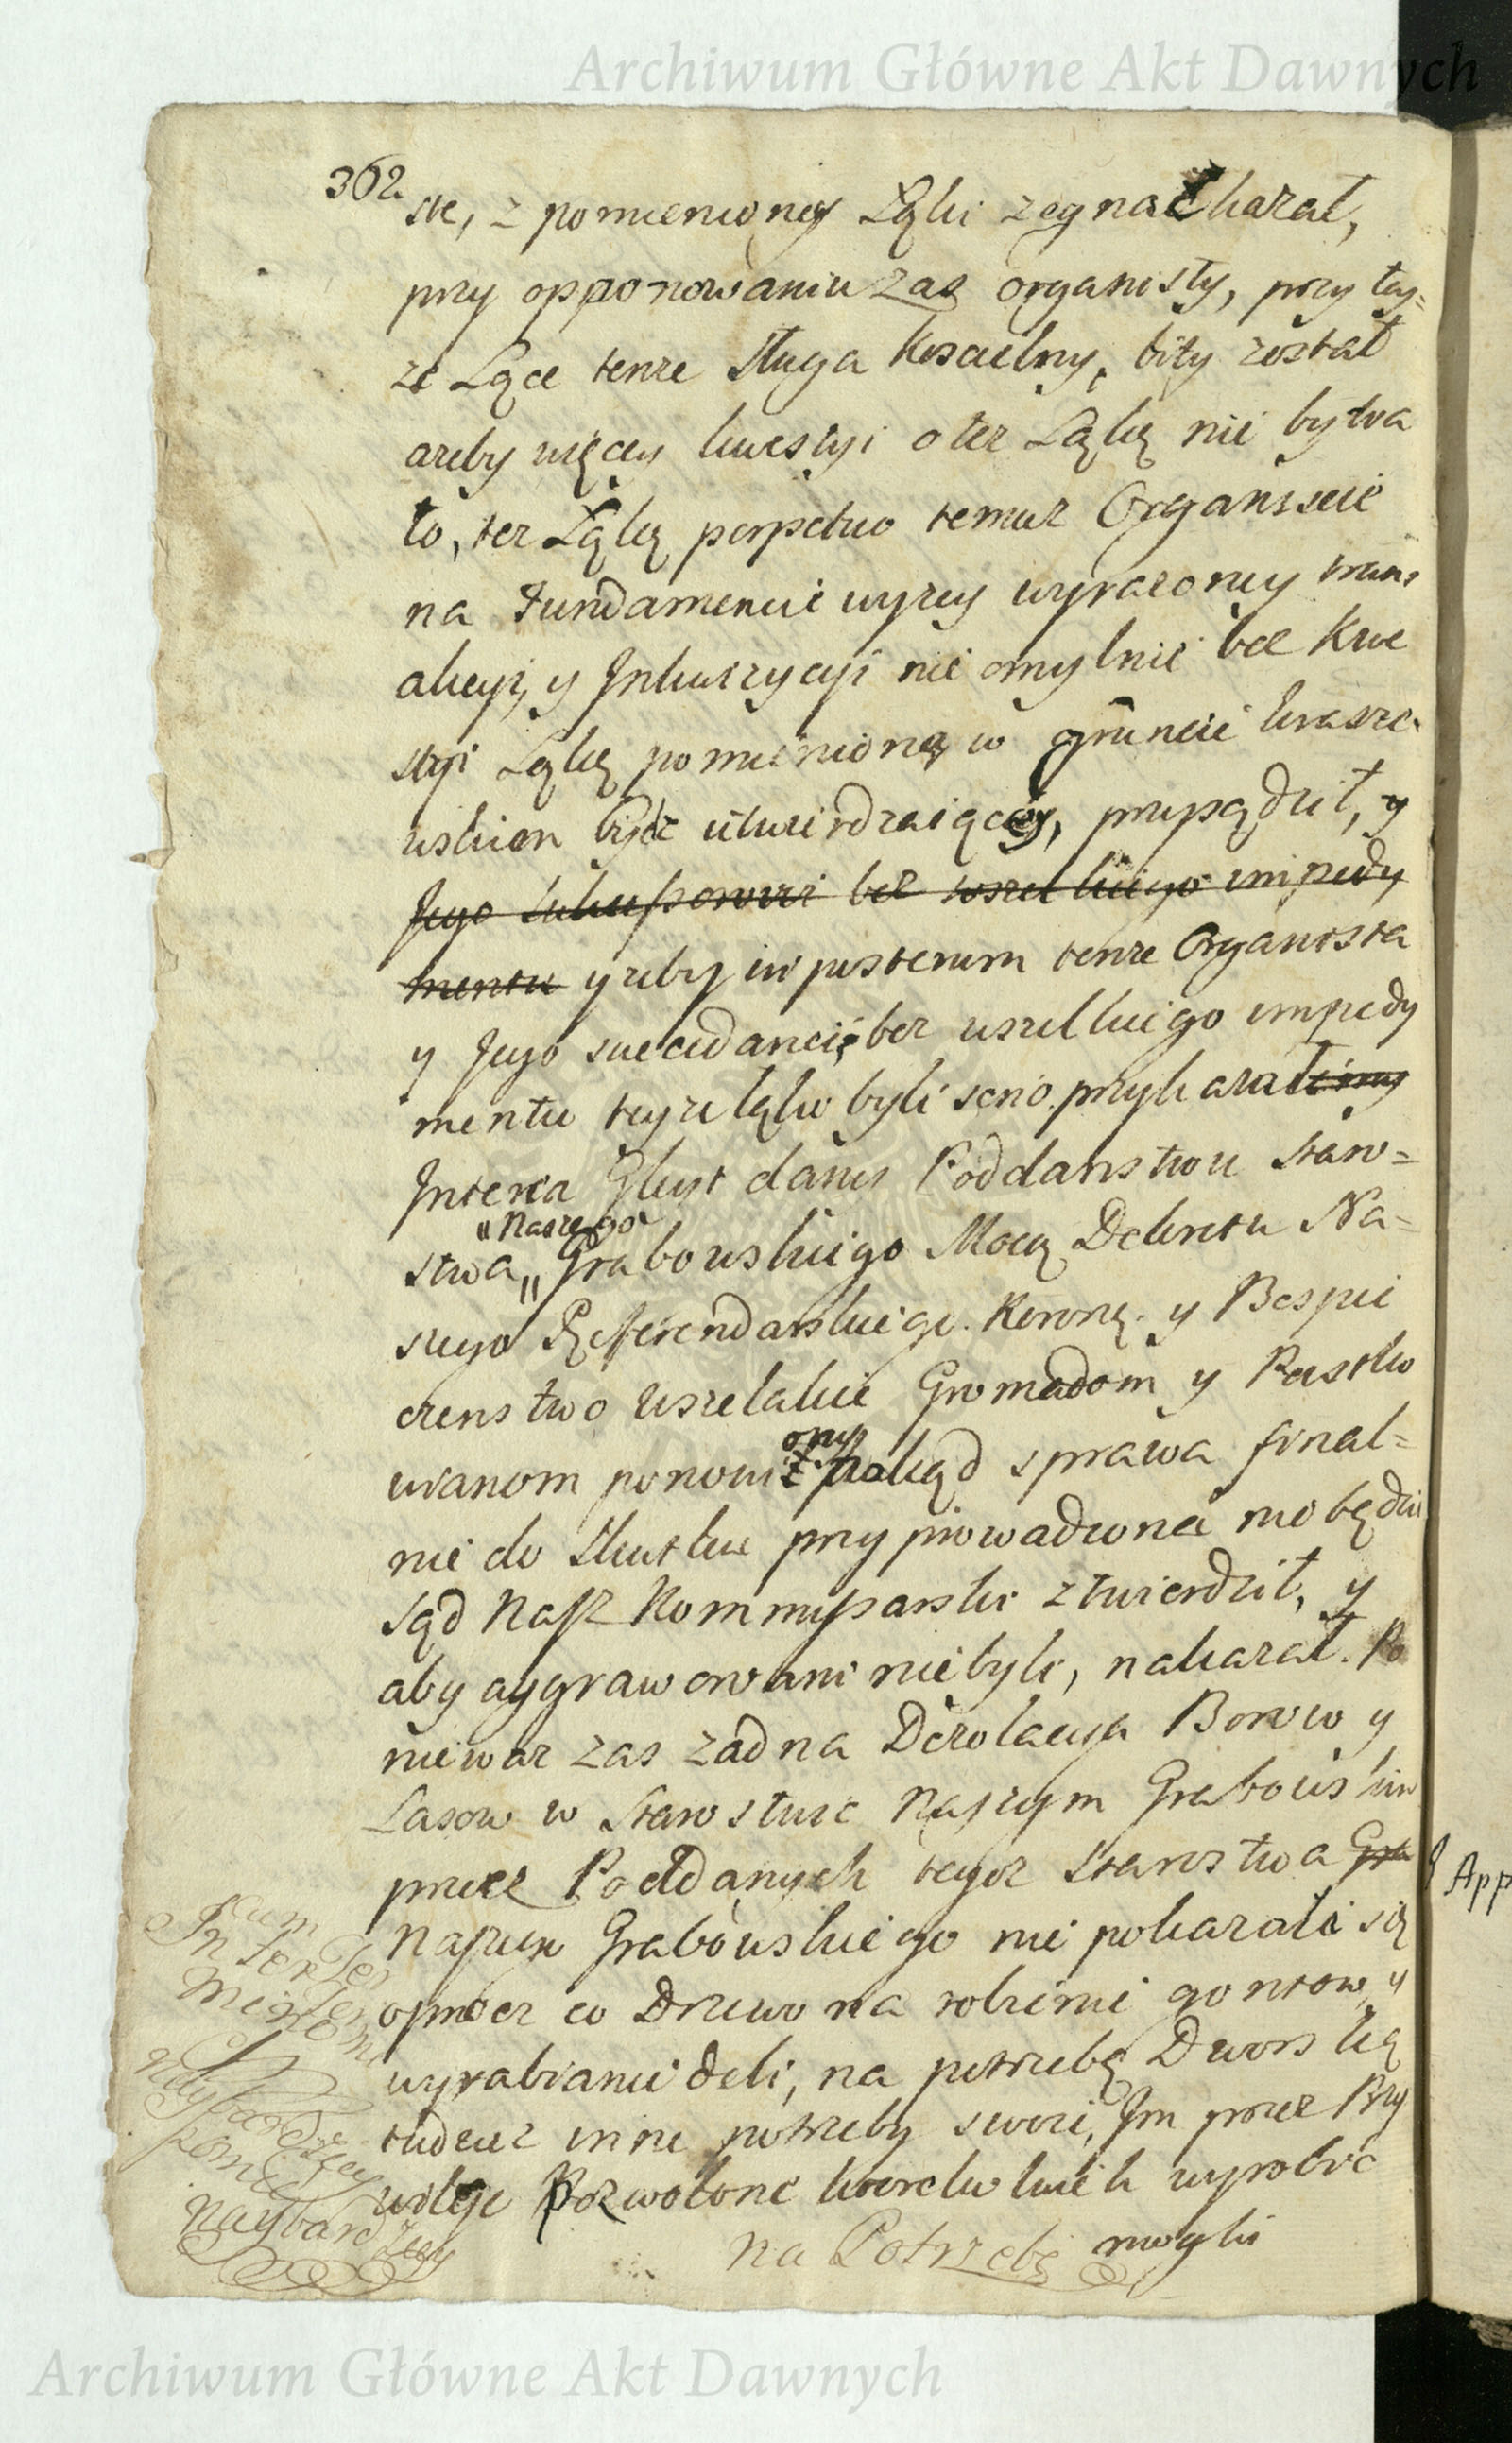 Archiwum Główne Akt Dawnych
362.
ste, z pomienioney Łąki zegnać kazał,
przy opponowaniu zas organisty, przy tey=
ze Łące tenze Sługa Koscielny, bity został
azeby więcey kwestyi o tez Łąkę nie bywa
ło, tez Łąkę perpetuo temuz Organiscie
na Fundamencie wyzey wyrazoney trans
akcyi, y Inkwizycyi nie omylnie bez Kwe
styi Łąkę pomienioną w gruncie Kraszew
skiem bydź utwierdzaiącey, przysądził, y
Jego bez wszelkiego impedy
mentu y zeby in posterum tenze Organista
y Jego succedanei, bez wszelkiego impedy
mentu teyze łąki byli seno. przykazalismy
Interea Gleyt dany Poddanstwu Staro=
"Naszego
stwa " Grabowskiego Mocą Dekretu Na=
szego Referendarskiego. Koronę. y Bespie
czenstwo wszelakie Gromadom y Pastko
wianom ponowić
ony
pokąd sprawa final=
nie do skutku przyprowadzona nie będzie
Sąd Nasz Kommyssarski ztwierdził, y
aby aggrawowani niebyli, nakazał. Po
niewaz zas zadna Dezolacya Borow y
Lasow w Starostwie Naszym Grabowskim
przez Poddanych tegoz Starostwa Gra
Naszym Grabowskiego nie pokazała się
oprocz co Drzewo na robienie gontow, y
wyrabianie deli, na potrzebę Dworską
tudziez inne potrzeby swoie, Im przez Przy
wileje Pozwolone kwerelu wyrobic
mogli
na Potrzebę
Cum
In ter Ter
Min
Naybardziey
pomie
Naybardziey
App
Archiwum Główne Akt Dawnych